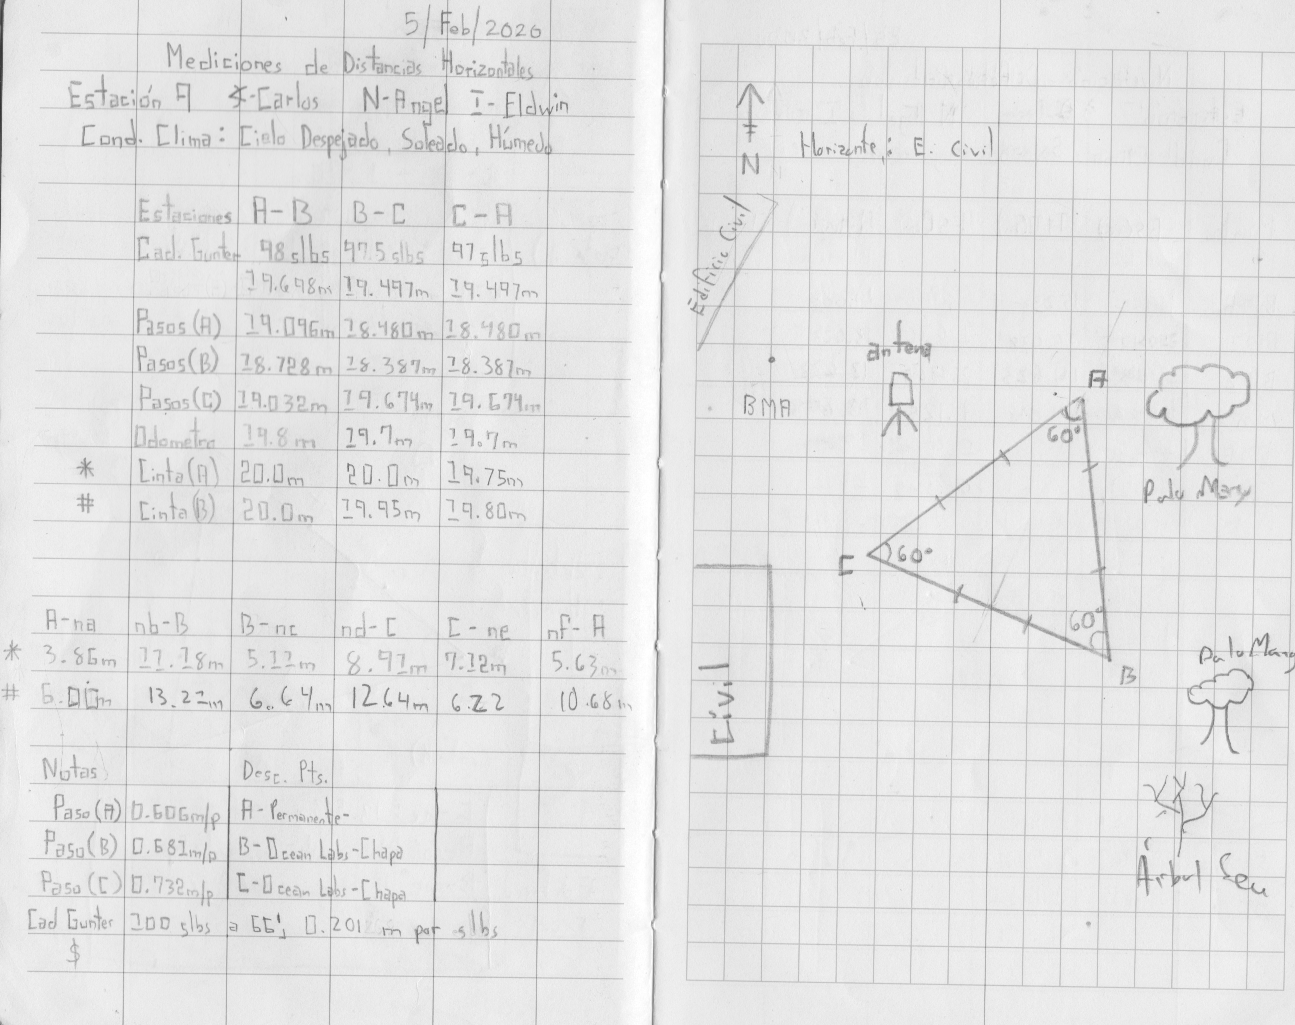 5/Feb/2020
Mediciones de Distancias Horizontales
Estación A ⊼-Carlos N-Angel I-Eldwin
Cond. Clima: Cielo Despejado, Soleado, Húmedo
Estaciones A-B B-C C-A
Cad. Gunter 98 slbs 97.5 slbs 97 slbs
19.698m 19.497m 19.497m
Pasos (A) 19.096m 18.480m 18.480m
Pasos (B) 18.728m 18.387m 18.387m
Pasos (C) 19.032m 19.674m 19.674m
Odometro 19.8m 19.7m 19.7m
* Cinta (A) 20.0m 20.0m 19.75m
# Cinta (B) 20.0m 19.95m 19.80m
A-na nb-B B-nc nd-C C-ne nf-A
* 3.86m 11.18m 5.12m 8.91m 7.12m 5.63m
# 6.00m 13.21m 6.64m 12.64m 6.22 10.68m
Notas Desc. Pts.
Paso (A) 0.606m/p A-Permanente-
Paso (B) 0.681m/p B-Ocean Labs-Chapa
Paso (C) 0.732m/p C-Ocean Labs-Chapa
Cad Gunter 100 slbs a 66'; 0.201 m por slbs
$
N
Horizonte: E. Civil
Edificio Civil
antena
A
BMA
60°
Palo Mang
C
60°
60°
B
Palo Mang
Civil
Árbol Seco